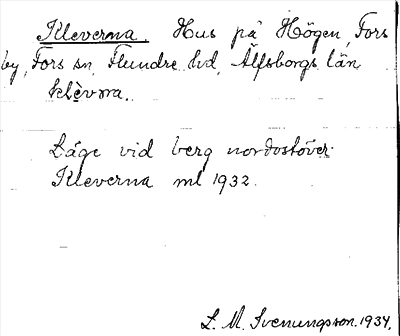 Kleverna. Hus på Högen, Fors
by, Fors sn, Flundre hd, Älfsborgs län
klèvna.
Läge vid berg nordostöver.
Kleverna ml 1932.
L. M. Svenungsson. 1934.